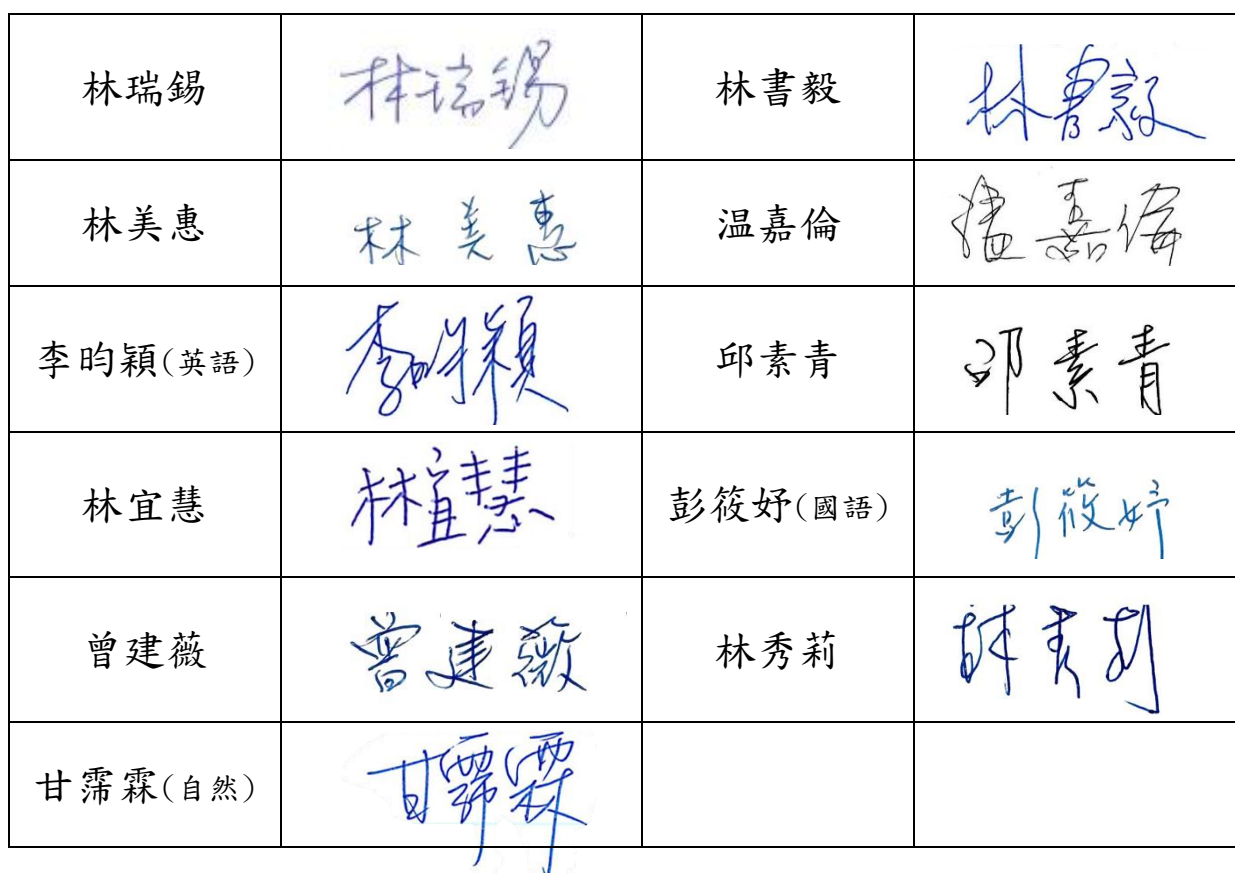 林瑞錫 林瑞錫 林書毅 林書毅
林美惠 林美惠 温嘉倫 温嘉倫
李昀穎(英語) 李昀穎 邱素青 邱素青
林宜慧 林宜慧 彭筱妤(國語) 彭筱妤
曾建薇 曾建薇 林秀莉 林秀莉
甘霈霖(自然) 甘霈霖